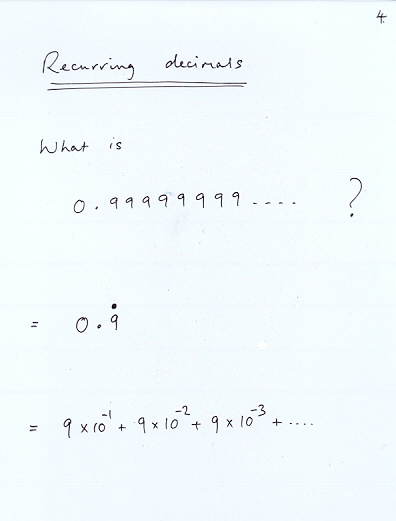 4.
Recurring decimals
What is
0.99999999.... ?
= 0.9̇
= 9 × 10⁻¹ + 9 × 10⁻² + 9 × 10⁻³ + ....